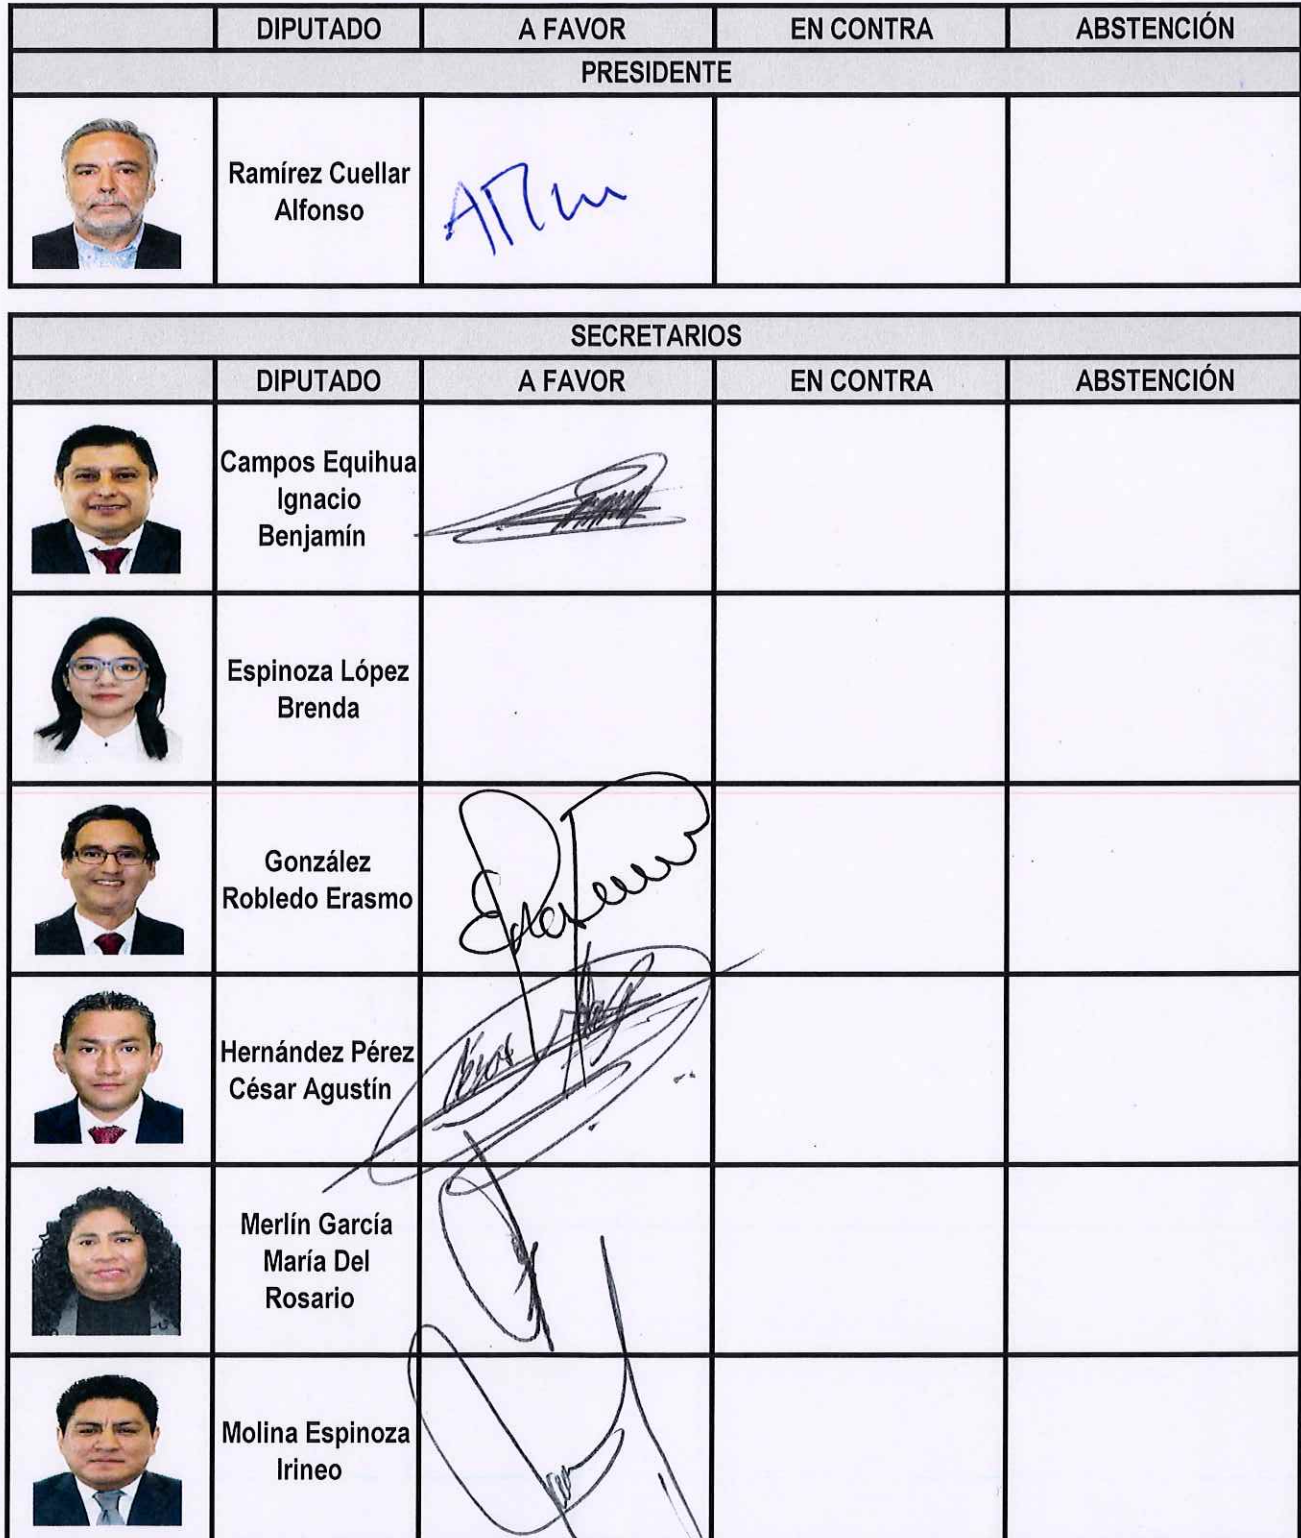 DIPUTADO A FAVOR EN CONTRA ABSTENCIÓN
PRESIDENTE
Ramírez Cuellar
Alfonso
SECRETARIOS
DIPUTADO A FAVOR EN CONTRA ABSTENCIÓN
Campos Equihua
Ignacio
Benjamín
Espinoza López
Brenda
González
Robledo Erasmo
Hernández Pérez
César Agustín
Merlín García
María Del
Rosario
Molina Espinoza
Irineo